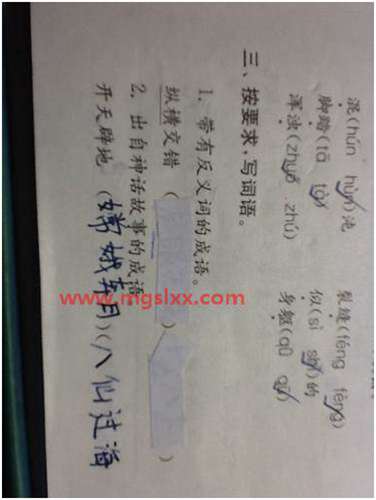 混(hún hùn)沌 裂缝(féng fèng)
脚踏(tā tà) 似(sì shì)的
浑浊(zhuó zhú) 身躯(qū
三、按要求,写词语。
1. 带有反义词的成语。
纵横交错 ( ) ( )
2. 出自神话故事的成语
开天辟地 (嫦娥奔月)(八仙过海
www.mgslxx.com